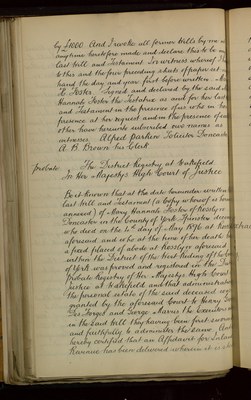 by £1000 And I revoke all former Wills by me
anytime heretofore made and declare this to be my
last will and Testament In witness whereof I
to this and the four preceding sheets of paper set my
hand the day and year first before written
H Foster Signed and declared by the said
Hannah Foster the Testatrix as and for her last
and Testament in the presence of us who in her
presence at her request and in the presence of each
other have hereunto subscribed our names as
witnesses Alfred Parkin Solicitor Doncaster
A. B. Brown his Clerk
Probate The District Registry at Wakefield
In Her Majestys High Court of Justice
Be it Known that at the date hereunder written
last will and Testament (a copy whereof is here
annexed) of Mary Hannah Foster of Rossington
Doncaster in the County of York Spinster deceased
who died on the 4th day of May 1896 at
aforesaid and who at the time of her death had
a fixed place of abode at aforesaid
within the District of the West Riding of the County
of York was proved and registered in the District
Probate Registry of Her Majestys High Court
Justice at Wakefield and that administration
the personal estate of the said deceased was
granted by the aforesaid Court to Henry
Des Forges and George the Executors
in the said Will they having been first sworn
and faithfully to administer the same And
hereby certified that an Affidavit for Inland
Revenue has been delivered wherein it is